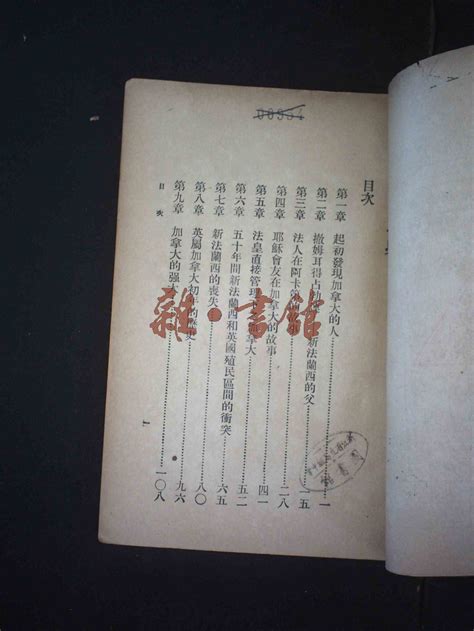 00934
目次
第一章 起初發現加拿大的人……一
第二章 撒姆耳得占 新法蘭西的父……一五
第三章 法人在阿卡 的 ……二八
第四章 耶穌會友在加拿大的故事……四一
第五章 法皇直接管理 加拿大……五二
第六章 五十年間新法蘭西和英國殖民區間的衝突……六五
第七章 新法蘭西的喪失……八〇
第八章 英屬加拿大初年的歷史……九六
第九章 加拿大的强大……一〇八
目次
1
雜書館
圖書館